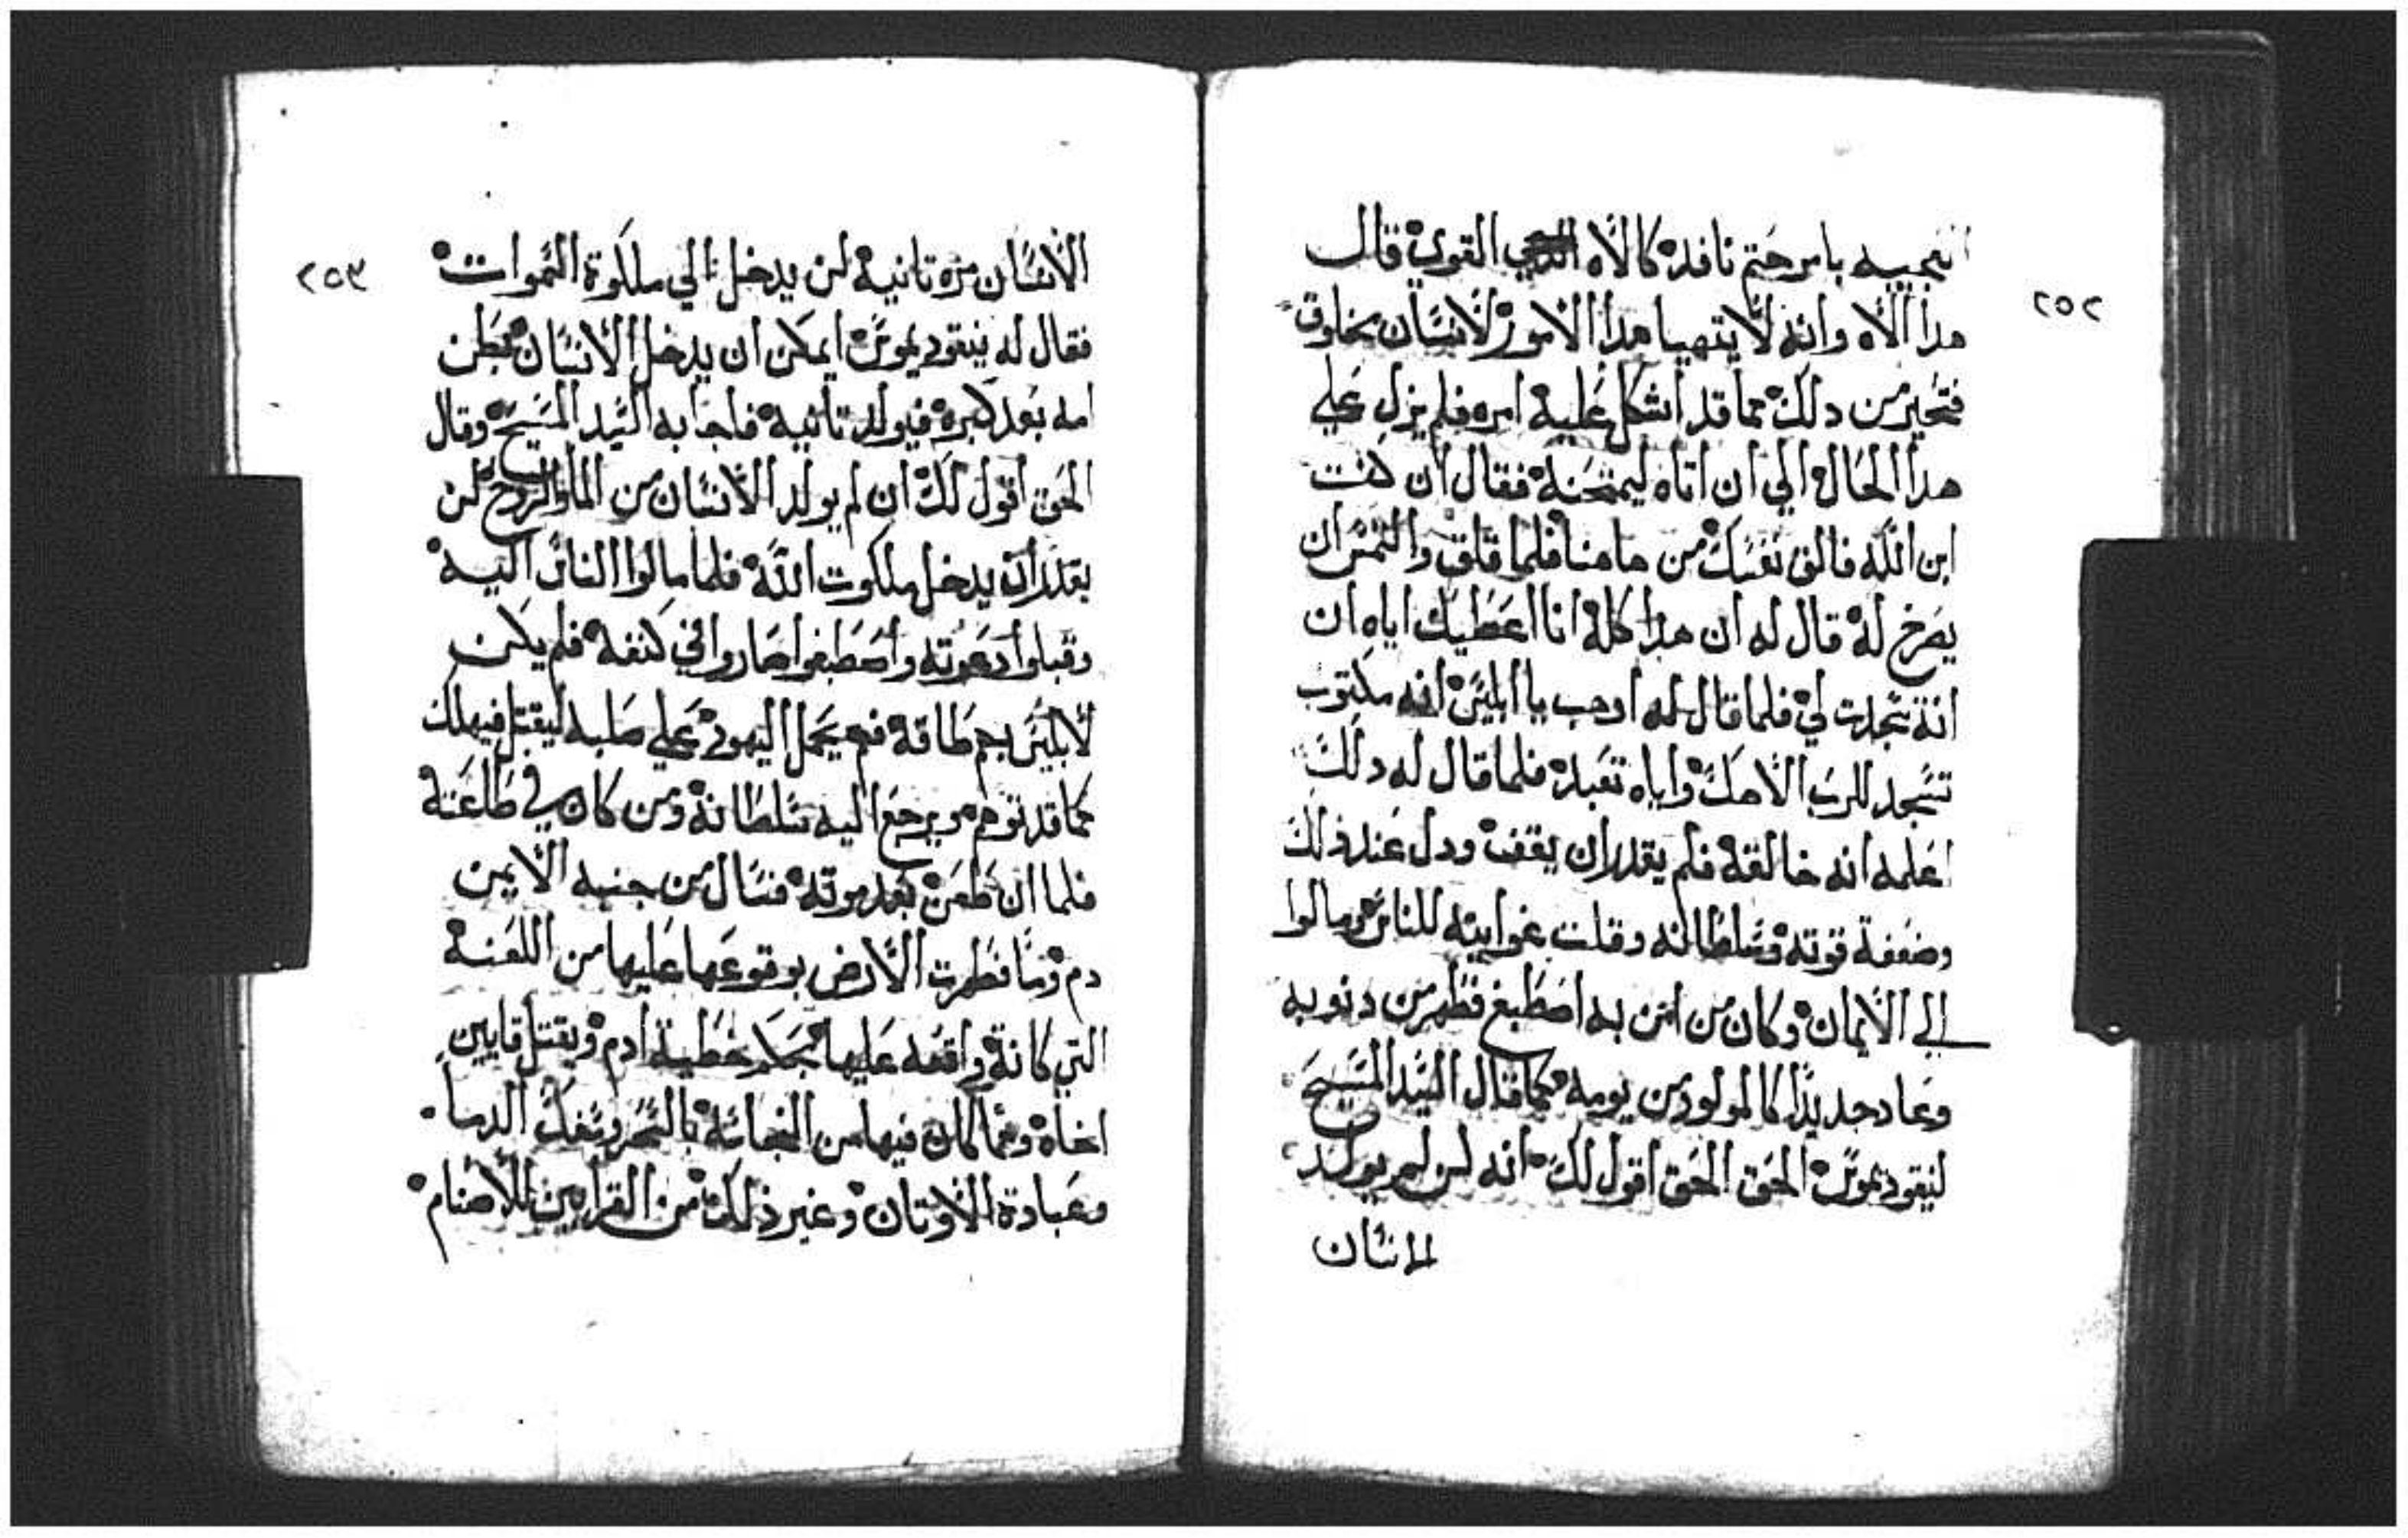 ٢٥٢
بامر حتم نافده كالاه القوي قال
هدا الاه وانه لا يتهيا هدا الامور لانسان مخلوق
فتحير من دلك مما قد اشكل عليه امره فلم يزل علي
هدا الحال الي ان اتاه ليمتحنه فقال ان كنت
ابن الله فالق نفسك من هاهنا فلما قلق والتمس ان
يصرخ له قال له ان هدا كله انا اعطيك اياه ان
انة سجدت لي فلما قال له ادهب يا ابليس انه مكتوب
تسجد للرب الاهك واياه تعبد فلما قال له دلك
اعلمه انه خالقه فلم يقدر ان يقف ودل عند ذلك
وضعفة قوته وسلطانه وقلت غوايته للناس ومالوا
الي الايمان وكان من امن به اصطبغ فتطهر من دنوبه
وعاد جديدا كالمولود من يومه كما قال السيد المسيح
لنيقوديموس الحق الحق اقول لك انه لن لم يولد
الانسان
٢٥٣
الانسان مره تانية لن يدخل الي ملكوة السموات
فقال له نيقوديموس ايمكن ان يدخل الانسان بطن
امه بعد كبره فيولد تانيه فاجابه السيد المسيح وقال
الحق اقول لك ان لم يولد الانسان من الما والروح لن
يقدر ان يدخل ملكوت الله فلما مالوا الناس اليه
وقبلوا دعوته واصطبغوا صاروا في كنفه فلم يكن
لابليس بهم طاقه يحمل اليهود علي صلبه ليقتل فيهلك
كما قد توهم ويرجع اليه سلطانه ومن كان في طاعته
فلما ان طعن بعد موته فسال من جنبه الايمن
دم وما فطهرت الارض بوقوعها عليها من اللعنة
التي كانة واقعه عليها خطية ادم وبقتل قايين
اخاه ومما كان فيها من النجاسة بالسحر وسفك الدما
وعبادة الاوتان وغير ذلك من القرابين للاصنام